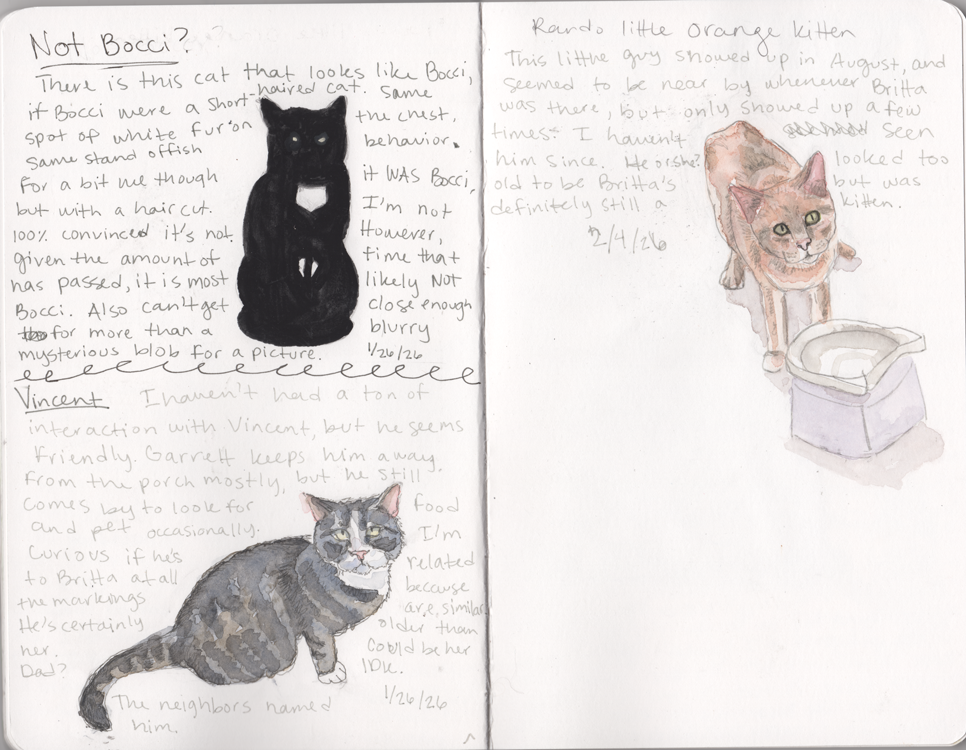 Not Bocci?
There is this cat that looks like Bocci,
if Bocci were a short-haired cat. Same
spot of white fur on the chest,
same stand offish behavior.
For a bit me though it WAS Bocci,
but with a haircut. I'm not
100% convinced it's not. However,
given the amount of time that
has passed, it is most likely NOT
Bocci. Also can't get close enough
for more than a blurry
mysterious blob for a picture. 1/26/26
Vincent I haven't had a ton of
interaction with Vincent, but he seems
friendly. Garrett keeps him away
from the porch mostly, but he still
comes by to look for food
and pet occasionally. I'm
curious if he's related
to Britta at all because
the markings are similar
He's certainly older than
her. Could be her
Dad? IDK.
1/26/26
The neighbors named
him.
Rando little orange kitten
This little guy showed up in August, and
seemed to be near by whenever Britta
was there, but only showed up a few
times. I haven't seen
him since. He or she? looked too
old to be Britta's but was
definitely still a kitten.
2/4/26